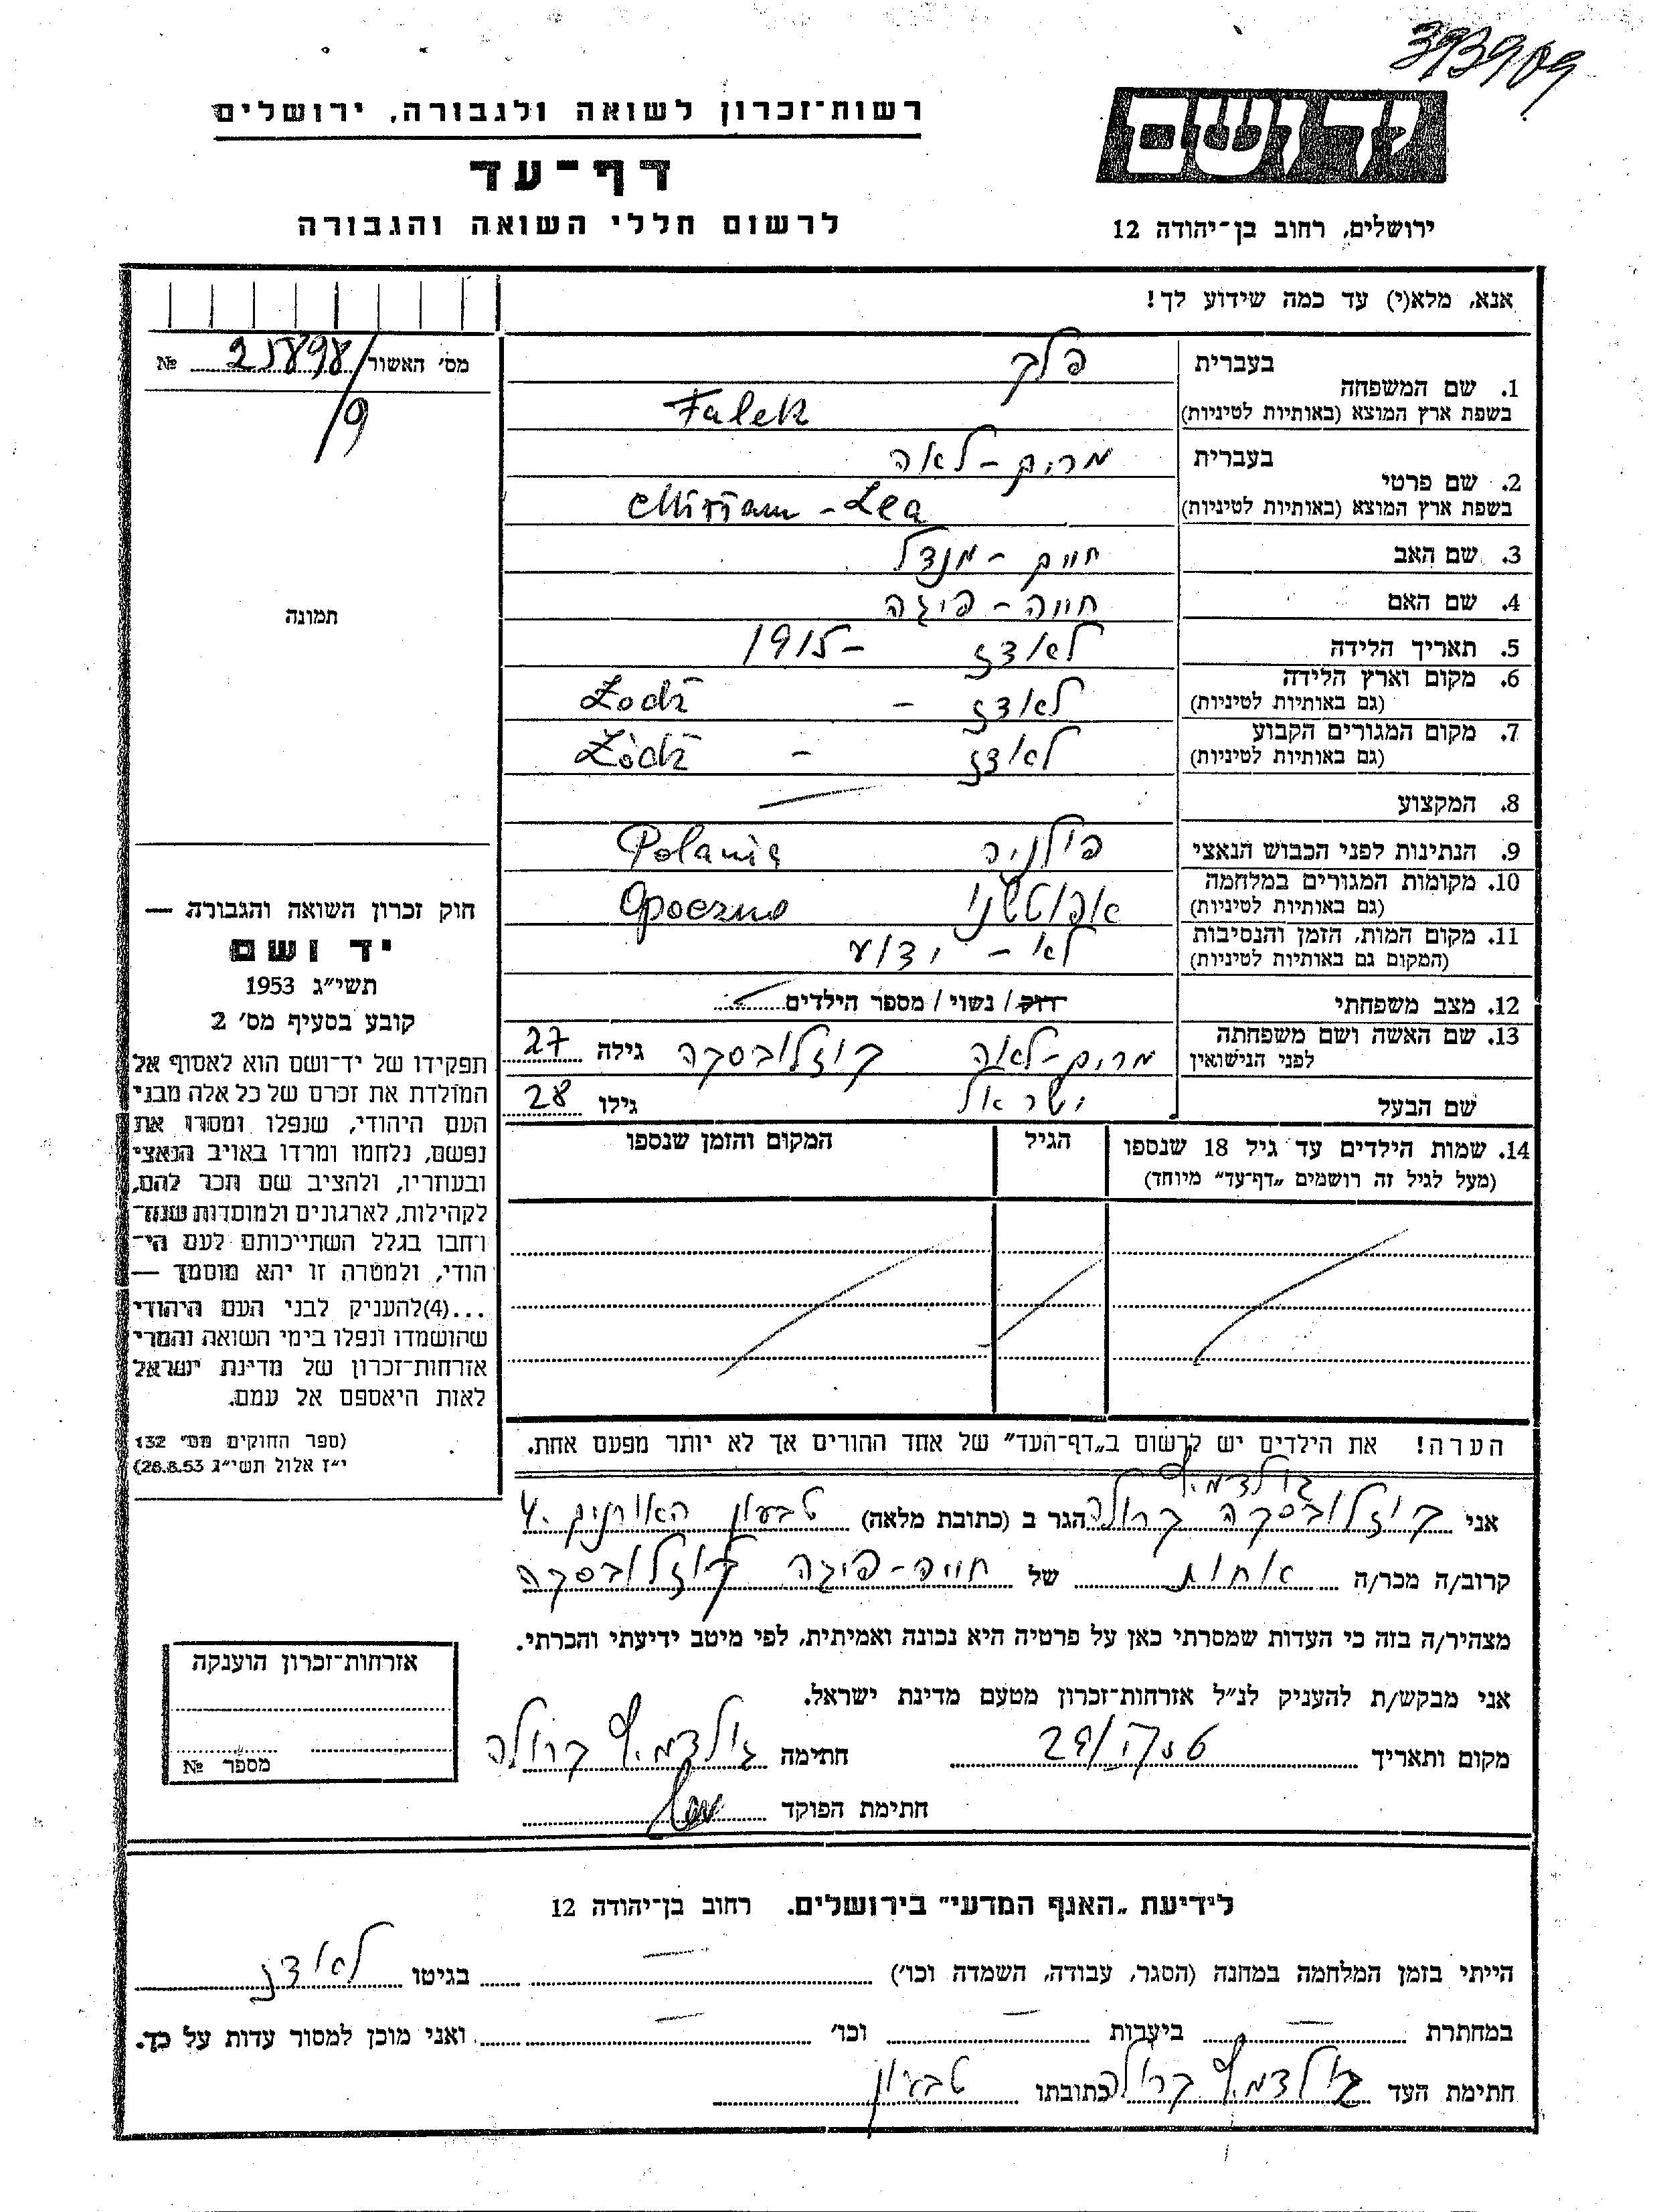 393909
יד ושם
ירושלים, רחוב בן־יהודה 12
רשות־זכרון לשואה ולגבורה, ירושלים
דף־עד
לרשום חללי השואה והגבורה
אנא, מלא(י) עד כמה שידוע לך!
מס' האשור 25898/9 №
בעברית פלק
1. שם המשפחה
בשפת ארץ המוצא (באותיות לטיניות) Falek
בעברית מרים - לאה
2. שם פרטי
בשפת ארץ המוצא (באותיות לטיניות) Miriam - Lea
3. שם האב חיים - מנדל
4. שם האם חייה - פיגה
5. תאריך הלידה לאדז - 1915
6. מקום וארץ הלידה לאדז - Łodź
(גם באותיות לטיניות)
7. מקום המגורים הקבוע לאדז - Łódź
(גם באותיות לטיניות)
8. המקצוע —
9. הנתינות לפני הכבוש הנאצי פולניה Polania
10. מקומות המגורים במלחמה אפוטשנו Opoczno
(גם באותיות לטיניות)
11. מקום המות, הזמן והנסיבות לא - ידוע
(המקום גם באותיות לטיניות)
12. מצב משפחתי רווק / נשוי / מספר הילדים
13. שם האשה ושם משפחתה מרים - לאה קוזלובסקה גילה 27
לפני הנישואין
שם הבעל ישראל גילו 28
14. שמות הילדים עד גיל 18 שנספו הגיל המקום והזמן שנספו
(מעל לגיל זה רושמים „דף־עד” מיוחד)
תמונה
חוק זכרון השואה והגבורה —
יד ושם
תשי״ג 1953
קובע בסעיף מס' 2
תפקידו של יד־ושם הוא לאסוף אל
המולדת את זכרם של כל אלה מבני
העם היהודי, שנפלו ומסרו את
נפשם, נלחמו ומרדו באויב הנאצי
ובעוזריו, ולהציב שם וזכר להם,
לקהילות, לארגונים ולמוסדות שנח־
רבו בגלל השתייכותם לעם הי־
הודי, ולמטרה זו יהא מוסמך —
...(4)להעניק לבני העם היהודי
שהושמדו ונפלו בימי השואה והמרי
אזרחות־זכרון של מדינת ישראל
לאות היאספם אל עמם.
(ספר החוקים מס' 132
י״ז אלול תשי״ג 26.8.53)
הערה! את הילדים יש לרשום ב„דף־העד” של אחד ההורים אך לא יותר מפעם אחת.
אני קוזלובסקה קרולה הגר ב (כתובת מלאה) טבעון האורנים 4.
קרוב/ה מכר/ה אחות של חייה - פיגה קוזלובסקה
מצהיר/ה בזה כי העדות שמסרתי כאן על פרטיה היא נכונה ואמיתית, לפי מיטב ידיעתי והכרתי.
אני מבקש/ת להעניק לנ״ל אזרחות־זכרון מטעם מדינת ישראל.
מקום ותאריך חתימה קרולה
חתימת הפוקד
אזרחות־זכרון הוענקה
מספר №
לידיעת „האגף המדעי” בירושלים. רחוב בן־יהודה 12
הייתי בזמן המלחמה במחנה (הסגר, עבודה, השמדה וכו') — בגיטו לאדז
במחתרת — ביערות — וכו' — ואני מוכן למסור עדות על כך.
חתימת העד קרולה כתובתו טבעון